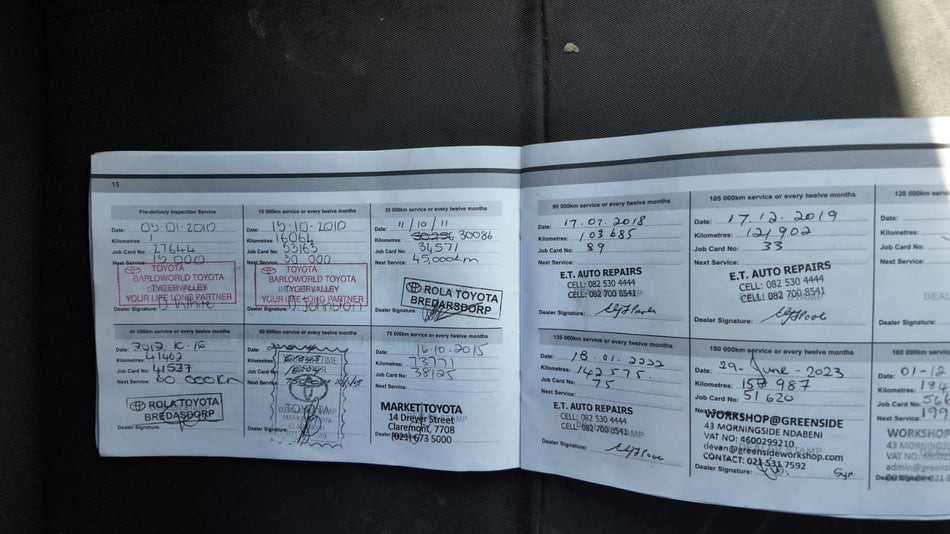 15
Pre-delivery Inspection Service
Date: 05-01-2010
Kilometres: 1
Job Card No: 27644
Next Service: 15 000
TOYOTA
BARLOWORLD TOYOTA
TYGERVALLEY
YOUR LIFE LONG PARTNER
15 000km service or every twelve months
Date: 15-10-2010
Kilometres: 16064
Job Card No: 53163
Next Service: 30 000
TOYOTA
BARLOWORLD TOYOTA
TYGERVALLEY
YOUR LIFE LONG PARTNER
30 000km service or every twelve months
Date: 11/10/11
Kilometres: 30086
Job Card No: 34571
Next Service: 45,000km
ROLA TOYOTA
BREDARSDORP
Dealer Signature:
45 000km service or every twelve months
Date: 2012.10.16
Kilometres: 41462
Job Card No: 41537
Next Service: 60 000km
ROLA TOYOTA
BREDASDORP
Dealer Signature:
60 000km service or every twelve months
Date:
Kilometres:
Job Card No:
Next Service:
Dealer Signature:
75 000km service or every twelve months
Date: 16-10-2015
Kilometres: 73771
Job Card No: 38125
Next Service:
MARKET TOYOTA
14 Dreyer Street
Claremont, 7708
(021) 673 5000
Dealer Signature:
90 000km service or every twelve months
Date: 17.07.2018
Kilometres: 103685
Job Card No: 89
Next Service:
E.T. AUTO REPAIRS
CELL: 082 530 4444
CELL: 082 700 8541
Dealer Signature:
105 000km service or every twelve months
Date: 17.12.2019
Kilometres: 121,902
Job Card No: 33
Next Service:
E.T. AUTO REPAIRS
CELL: 082 530 4444
CELL: 082 700 8541
Dealer Signature:
120 000km
135 000km service or every twelve months
Date: 18.01.2022
Kilometres: 142575.
Job Card No: 75
Next Service:
E.T. AUTO REPAIRS
CELL: 082 530 4444
CELL: 082 700 8541
Dealer Signature:
150 000km service or every twelve months
Date: 29-June-2023
Kilometres: 157 987
Job Card No: 51 620
Next Service:
WORKSHOP@GREENSIDE
43 MORNINGSIDE NDABENI
VAT NO: 4600299210
devan@greensideworkshop.com
CONTACT: 021 531 7592
Dealer Signature:
165 000km
Date: 01-12
Kilometres: 184
Job Card No: 566
Next Service: 199
WORKSHOP
43 MORNING
VAT NO:
admin@green